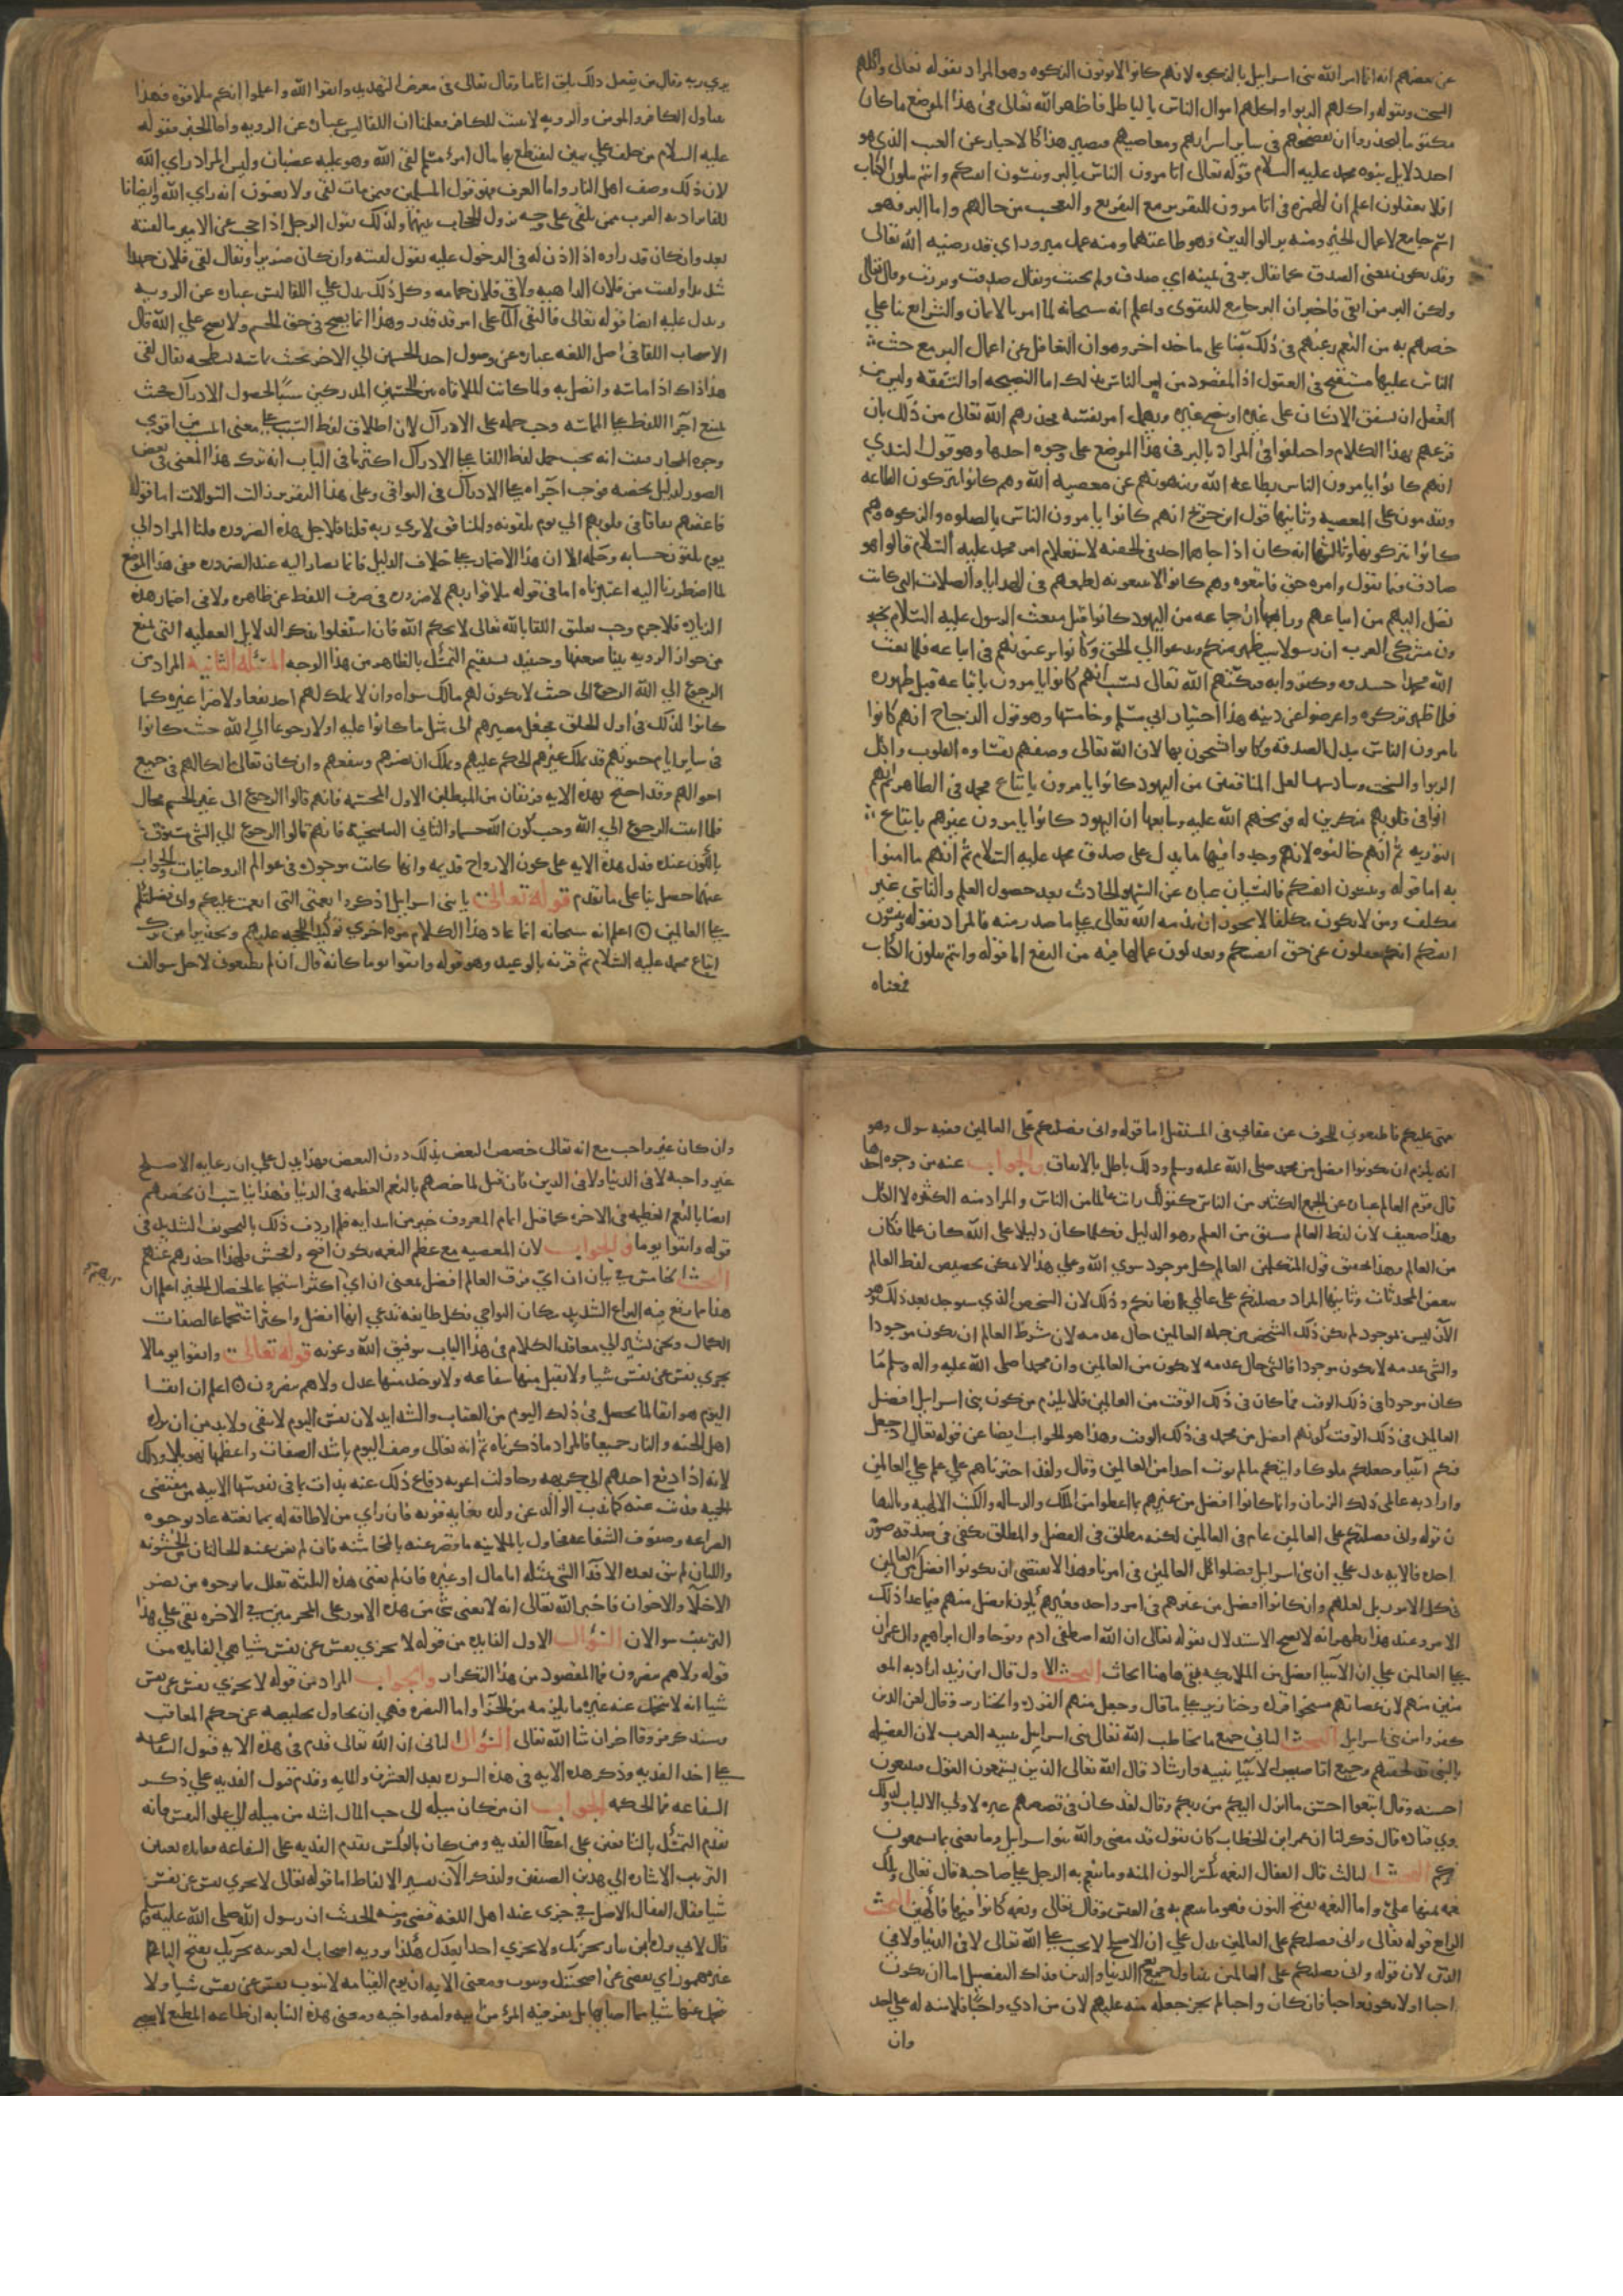 عن بعضهم انه انما امر الله بنى اسرائيل بالزكوه لانهم كانوا لا يوتون الزكوه وهو المراد بقوله تعالى واكلهم
السحت وبقوله واكلهم الربوا واكلهم اموال الناس بالباطل فاظهر الله تعالى فى هذا الموضع ما كان
مكتوما ليحذروا ان يفضحهم فى ساير اسرارهم ومعاصيهم فيصير هذا كالاخبار عن الغيب الذي هو
احد دلايل نبوه محمد عليه السلام قوله تعالى اتامرون الناس بالبر وتنسون انفسكم وانتم تتلون الكتاب
افلا تعقلون اعلم ان الهمزه فى اتامرون للتقرير مع التقريع والتعجب من حالهم واما البر فهو
اسم جامع لاعمال الخير ومنه بر الوالدين وهو طاعتهما ومنه عمل مبرور اي قد رضيه الله تعالى
وقد يكون بمعنى الصدق كما يقال بر فى يمينه اي صدق ولم يحنث ويقال صدقت وبررت وقال تعالى
ولكن البر من اتقى فاخبر ان البر جامع للتقوى واعلم انه سبحانه لما امر بالايمان والشرايع بنا على
خصهم به من النعم رغبهم فى ذلك بنا على ماخذ اخر وهو ان التغافل عن اعمال البر مع حث
الناس عليها مستقبح فى العقول اذ المقصود من امر الناس بذلك اما النصيحه او الشفقه وليس من
العقل ان يشفق الانسان على غيره او ينصح غيره ويهمل امر نفسه فحذرهم الله تعالى من ذلك بان
قرعهم بهذا الكلام واختلفوا فى المراد بالبر فى هذا الموضع على وجوه احدها وهو قول السدي
انهم كانوا يامرون الناس بطاعه الله وينهونهم عن معصيه الله وهم كانوا يتركون الطاعه
ويقدمون على المعصيه وثانيها قول ابن جريج انهم كانوا يامرون الناس بالصلوه والزكوه وهم
كانوا يتركونها وثالثها انه كان اذا جاهم احد فى الخفيه لاستعلام امر محمد عليه السلام قالوا هو
صادق فيما يقول وامره حق فاتبعوه وهم كانوا لا يتبعونه لطمعهم فى الهدايا والصلات التى كانت
تصل اليهم من اتباعهم ورابعها ان جماعه من اليهود كانوا قبل مبعث الرسول عليه السلام يخبر
ون مشركى العرب ان رسولا سيظهر منكم ويدعوا الى الحق وكانوا يرغبونهم فى اتباعه فلما بعث
الله محمدا حسدوه وكفروا به فبكتهم الله تعالى بسبب انهم كانوا يامرون باتباعه قبل ظهوره
فلما ظهر تركوه واعرضوا عن دينه هذا اختيار ابى مسلم وخامسها وهو قول الزجاج انهم كانوا
يامرون الناس ببذل الصدقه وكانوا يشحون بها لان الله تعالى وصفهم بقساوه القلوب واكل
الربوا والسحت وسادسها لعل المنافقين من اليهود كانوا يامرون باتباع محمد فى الظاهر ثم انهم
كانوا فى قلوبهم منكرين له فوبخهم الله عليه وسابعها ان اليهود كانوا يامرون غيرهم باتباع
التوريه ثم انهم خالفوه لانهم وجدوا فيها ما يدل على صدق محمد عليه السلام ثم انهم ما امنوا
به اما قوله وتنسون انفسكم فالنسيان عباره عن السهو الحادث بعد حصول العلم والناسى غير
مكلف ومن لا يكون مكلفا لا يجوز ان يذمه الله تعالى على ما صدر منه فالمراد بقوله وتنسون
انفسكم انكم تغفلون عن حق انفسكم وتعدلون عما لها فيه من النفع اما قوله وانتم تتلون الكتاب
فمعناه
يري ربه وقال من يفعل ذلك يلق اثاما وقال تعالى فى معرض التهديد واتقوا الله واعلموا انكم ملاقوه فهذا
يتناول الكافر والمومن والرويه لا تثبت للكافر فعلمنا ان اللقا ليس عباره عن الرويه واما الخبر فقوله
عليه السلام من حلف على يمين ليقتطع بها مال امرء مسلم لقى الله وهو عليه غضبان وليس المراد راي الله
لان ذلك وصف اهل النار واما العرف فهو قول المسلمين فيمن مات لقى الله ولا يعنون انه راي الله وايضا فا
للقا يراد به القرب ممن يلقى على وجه يزول الحجاب بينهما ولذلك يقول الرجل اذا حجب عن الامير ما لقيته
بعد وان كان قد راوه اذا اذن له فى الدخول عليه يقول لقيته وان كان ضريرا ويقال لقى فلان جهدا
شديدا ولقيت من فلان الداهيه ولاقى فلان حمامه وكل ذلك يدل على اللقا ليس عباره عن الرويه
ويدل عليه ايضا قوله تعالى فالتقى الما على امر قد قدر وهذا انما يصح فى حق الجسم ولا يصح على الله قال
الاصحاب اللقا فى اصل اللغه عباره عن وصول احد الجسمين الى الاخر بحيث يماسه بسطحه يقال لقى
هذا ذاك اذا ماسه واتصل به ولما كانت الملاقاه بين الجسمين المدركين سببا لحصول الادراك فحيث
يمتنع اجرا اللفظ على المماسه وجب حمله على الادراك لان اطلاق لفظ السبب على معنى المسبب من اقوي
وجوه المجاز فثبت انه يجب حمل لفظ اللقا على الادراك اكثر ما فى الباب انه ترك هذا المعنى فى بعض
الصور لدليل يخصه فوجب اجراه على الادراك فى البواقى وعلى هذا التقرير زالت السوالات اما قوله
فاعقبهم نفاقا فى قلوبهم الى يوم يلقونه والمنافق لا يري ربه قلنا فلاجل هذه الضروره قلنا المراد الى
يوم يلقون حسابه وحكمه الا ان هذا الاضمار على خلاف الدليل فانما يصار اليه عند الضروره ففى هذا الموضع
لما اضطررنا اليه اعتبرناه اما فى قوله ملاقوا ربهم لا ضروره فى صرف اللفظ عن ظاهره ولا فى اضمار هذه
الزياده فلا جرم وجب تعليق اللقا بالله تعالى لا بحكم الله فان استغلوا بذكر الدلايل العقليه التى تمنع
من جواز الرويه بينا ضعفها وحينيذ يستقيم التمسك بالظاهر من هذا الوجه المسئله الثانيه المراد من
الرجوع الى الله الرجوع الى حيث لا يكون لهم مالك سواه وان لا يملك لهم احد نفعا ولا ضرا غيره كما
كانوا لذلك فى اول الخلق فجعل مصيرهم الى مثل ما كانوا عليه اولا رجوعا الى الله حيث كانوا
فى ساير ايام حيوتهم قد يملك غيرهم الحكم عليهم ويملك ان يضرهم وينفعهم وان كان تعالى مالكا لهم فى جميع
احوالهم وقد احتج بهذه الايه فريقان من المبطلين الاول المجسمه فانهم قالوا الرجوع الى غير الجسم محال
فلما ثبت الرجوع الى الله وجب كون الله جسما والثانى التناسخيه فانهم قالوا الرجوع الى الشى مسبوق
بالكون عنده فدل هذه الايه على كون الارواح قديمه وانها كانت موجوده فى عوالم الروحانيات والجواب
عنهما حصل بنا على ما تقدم قوله تعالى يا بنى اسرائيل اذكروا نعمتى التى انعمت عليكم وانى فضلتكم
على العالمين اعلم انه سبحانه انما عاد هذا الكلام مره اخري توكيدا للحجه عليهم وتحذيرا من ترك
اتباع محمد عليه السلام ثم قرنه بالوعيد وهو قوله واتقوا يوما كانه قال ان لم تطيعونى لاجل سوالف
نعمتى عليكم فاطيعونى للخوف عن عقابى فى المستقبل اما قوله وانى فضلتكم على العالمين ففيه سوال وهو
انه يلزم ان يكونوا افضل من محمد صلى الله عليه وسلم وذلك باطل بالاتفاق والجواب عنه من وجوه احدها
قال قوم العالم عباره عن الجمع الكثير من الناس كقولك رايت عالما من الناس والمراد منه الكثره لا الكل
وهذا ضعيف لان لفظ العالم مشتق من العلم وهو الدليل فكلما كان دليلا على الله كان علما فكان
من العالم وهذا تحقيق قول المتكلمين العالم كل موجود سوي الله وعلى هذا لا يمكن تخصيص لفظ العالم
ببعض المحدثات وثانيها المراد فضلتكم على عالمى زمانكم وذلك لان الشخص الذي سيوجد بعد ذلك هو
الان ليس بموجود لم يكن ذلك الشخص من جمله العالمين حال عدمه لان شرط العالم ان يكون موجودا
والشى حال عدمه لا يكون موجودا فالشى حال عدمه لا يكون من العالمين وان محمدا صلى الله عليه واله وسلم ما
كان موجودا فى ذلك الوقت فما كان فى ذلك الوقت من العالمين فلا يلزم من كون بنى اسرائيل افضل
العالمين فى ذلك الوقت كونهم افضل من محمد فى ذلك الوقت وهذا هو الجواب ايضا عن قوله تعالى اذ جعل
فيكم انبيا وجعلكم ملوكا واتيكم ما لم يوت احدا من العالمين وقال ولقد اخترناهم على علم على العالمين
واراد به عالمى ذلك الزمان وانما كانوا افضل من غيرهم بما اعطوا من الملك والرساله والكتب الالهيه وثالثها
ن قوله وانى فضلتكم على العالمين عام فى العالمين لكنه مطلق فى الفضل والمطلق يكفى فى صدقه صوره
احده فالايه تدل على ان بنى اسرائيل فضلوا على العالمين فى امر ما وهذا لا يقتضى ان يكونوا افضل من العالمين
فى كل الامور بل لعلهم وان كانوا افضل من غيرهم فى امر واحد فغيرهم يكون افضل منهم فيما عدا ذلك
الامر وعند هذا يظهر انه لا يصح الاستدلال بقوله تعالى ان الله اصطفى ادم ونوحا وال ابراهيم وال عمران
على العالمين على ان الانبيا افضل من الملايكه بقى هاهنا ابحاث البحث الاول قال ابن زيد اراد به المو
منين منهم لان عصاتهم مسخوا قرده وخنازير على ما قال وجعل منهم القرده والخنازير وقال لعن الذين
كفروا من بنى اسرائيل البحث الثانى جميع ما يخاطب الله تعالى بنى اسرائيل تنبيه العرب لان الفضيله
بالنبى قد لحقتهم وجميع اقاصيص الانبيا تنبيه وارشاد قال الله تعالى الذين يستمعون القول فيتبعون
احسنه وقال اتبعوا احسن ما انزل اليكم من ربكم وقال لقد كان فى قصصهم عبره لاولى الالباب ولذلك
روي قتاده قال ذكر لنا ان عمر ابن الخطاب كان يقول قد مضى والله بنو اسرائيل وما يغنى ما تسمعون
غيركم البحث الثالث قال القفال النعمه بكسر النون المنه وما ينعم به الرجل على صاحبه قال تعالى وتلك
نعمه تمنها على واما النعمه بفتح النون فهو ما يتنعم به فى العيش وقال تعالى ونعمه كانوا فيها فاكهين البحث
الرابع قوله تعالى وانى فضلتكم على العالمين يدل على ان الاصلح لا يجب على الله تعالى لا فى الدنيا ولا فى
الدين لان قوله وانى فضلتكم على العالمين يتناول جميع نعم الدنيا والدين فذاك التفضيل اما ان يكون
واجبا او لا يكون واجبا فان كان واجبا لم يجز جعله منه عليهم لان من ادي واجبا فلا منه له على احد
وان
وان كان غير واجب مع انه تعالى خصص البعض بذلك دون البعض فهذا يدل على ان رعايه الاصلح
غير واجبه لا فى الدنيا ولا فى الدين فان قيل لما خصهم بالنعم العظيمه فى الدنيا فهذا يناسب ان يخصهم
ايضا بالنعم العظيمه فى الاخره كما قيل اتمام المعروف خير من ابتدايه فلم اردف ذلك بالتخويف الشديد فى
قوله واتقوا يوما والجواب لان المعصيه مع عظم النعمه يكون اقبح وافحش فلهذا حذرهم عنهم
البحث الخامس فى بيان ان اي فرق العالم افضل يعنى ان اي اكثر استجماعا لخصال الخير اعلم ان
هذا مما يقع فيه النزاع الشديد سكان النواحي فكل طايفه تدعي انها افضل واكثر استجماعا لصفات
الكمال ونحن نشير الى معاقد الكلام فى هذا الباب بتوفيق الله وعونه قوله تعالى واتقوا يوما لا
تجزي نفس عن نفس شيا ولا تقبل منها شفاعه ولا يوخذ منها عدل ولا هم ينصرون اعلم ان اتقا
اليوم هو اتقا لما يحصل فى ذلك اليوم من العقاب والشدايد لان نفس اليوم لا يتقى ولا بد من ان يرده
اهل الجنه والنار جميعا فالمراد ما ذكرناه ثم انه تعالى وصف اليوم باشد الصفات واعظمها تهويلا وذلك
لانه اذا دفع احدهم الى كريهه وحاولت اعوانه دفاع ذلك عنه بذلت ما فى نفوسها الابيه من مقتضى
الحميه فذبت عنه كما يذب الوالد عن ولده بغايه قوته فان راي من لا طاقه له بممانعته عاد بوجوه
الضراعه وصنوف الشفاعه فحاول بالملاينه ما قصر عنه بالمخاشنه فان لم تغن عنه الحالتان من الخشونه
والليان لم يبق بعده الا فدا الشى بمثله اما مال او غيره فان لم تغنى هذه الثلثه تعلل بما يرجوه من نصر
الاخلا والاخوان فاخبر الله تعالى انه لا يغنى شى من هذه الامور على المجرمين فى الاخره بقى على هذا
الترتيب سوالان السؤال الاول الفايده من قوله لا تجزي نفس عن نفس شيا هي الفايده من
قوله ولا هم ينصرون فما المقصود من هذا التكرار والجواب المراد من قوله لا تجزي نفس عن نفس
شيا انه لا يتحمل عنه غيره ما يلزمه من الجزا واما النصره فهى ان يحاول تخليصه عن حكم المعاقب
وسنذكر فرقا اخر ان شا الله تعالى السؤال الثانى ان الله تعالى قدم فى هذه الايه قبول الشفاعه
على اخذ الفديه وذكر هذه الايه فى هذه السوره بعد العشرين والمايه وقدم قبول الفديه على ذكر
الشفاعه فما الحكمه الجواب ان من كان ميله الى حب المال اشد من ميله الى علو النفس فانه
يقدم التمسك بالشافعين على اعطا الفديه ومن كان بالعكس يقدم الفديه على الشفاعه ففايده تغيير
الترتيب الاشاره الى هذين الصنفين ولنذكر الان تفسير الالفاظ اما قوله تعالى لا تجزي نفس عن نفس
شيا فقال القفال الاصل فى جزى عند اهل اللغه قضى ومنه الحديث ان رسول الله صلى الله عليه وسلم
قال لابى برده ابن نيار تجزيك ولا تجزي احدا بعدك هكذا يرويه اصحاب العربيه تجزيك بفتح التا
غير مهموز اي تقضى عن اضحيتك وتنوب ومعنى الايه ان يوم القيامه لا تنوب نفس عن نفس شيا ولا
تحمل عنها شيا مما اصابها بل يفر فيه المرء من ابيه وامه واخيه ومعنى هذه النيابه ان طاعه المطيع لا تقضى